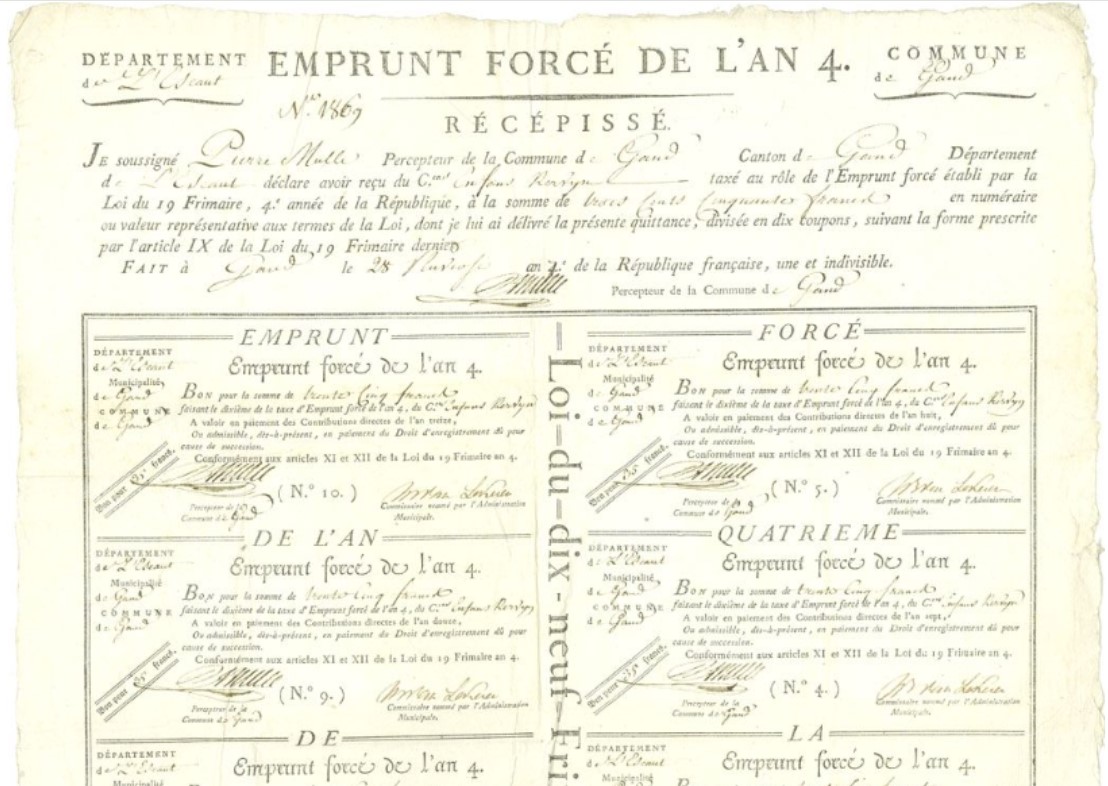 DÉPARTEMENT
de L'Escaut
EMPRUNT FORCÉ DE L'AN 4.
COMMUNE
de Gand
N.º 1869
RÉCÉPISSÉ.
JE soussigné Pierre Mulle Percepteur de la Commune de Gand Canton de Gand Département
de L'Escaut déclare avoir reçu du C.en Enfans Kervyn taxé au rôle de l'Emprunt forcé établi par la
Loi du 19 Frimaire, 4.e année de la République, à la somme de trois cents cinquante francs en numéraire
ou valeur représentative aux termes de la Loi, dont je lui ai délivré la présente quittance, divisée en dix coupons, suivant la forme prescrite
par l'article IX de la Loi du 19 Frimaire dernier,
FAIT à Gand le 28 an 4.e de la République française, une et indivisible.
Percepteur de la Commune de Gand
EMPRUNT
DÉPARTEMENT
de L'Escaut
Municipalité
de Gand
COMMUNE
de Gand
Emprunt forcé de l'an 4.
BON pour la somme de trente cinq francs
faisant le dixième de la taxe d'Emprunt forcé de l'an 4, du C.en Enfans Kervyn
A valoir en paiement des Contributions directes de l'an treize,
Ou admissible, dès-à-présent, en paiement du Droit d'enregistrement dû pour
cause de succession.
Conformément aux articles XI et XII de la Loi du 19 Frimaire an 4.
Bon pour 35 francs.
(N.º 10.)
Percepteur de la
Commune de Gand
Commissaire nommé par l'Administration
Municipale.
FORCÉ
DÉPARTEMENT
de L'Escaut
Municipalité
de Gand
COMMUNE
de Gand
Emprunt forcé de l'an 4.
BON pour la somme de trente cinq francs
faisant le dixième de la taxe d'Emprunt forcé de l'an 4, du C.en Enfans Kervyn
A valoir en paiement des Contributions directes de l'an huit,
Ou admissible, dès-à-présent, en paiement du Droit d'enregistrement dû pour
cause de succession.
Conformément aux articles XI et XII de la Loi du 19 Frimaire an 4.
Bon pour 35 francs.
(N.º 5.)
Percepteur de la
Commune de Gand
Commissaire nommé par l'Administration
Municipale.
Loi-du-dix-neuf-Fri
DE L'AN
DÉPARTEMENT
de L'Escaut
Municipalité
de Gand
COMMUNE
de Gand
Emprunt forcé de l'an 4.
BON pour la somme de trente cinq francs
faisant le dixième de la taxe d'Emprunt forcé de l'an 4, du C.en Enfans Kervyn
A valoir en paiement des Contributions directes de l'an douze,
Ou admissible, dès-à-présent, en paiement du Droit d'enregistrement dû pour
cause de succession.
Conformément aux articles XI et XII de la Loi du 19 Frimaire an 4.
Bon pour 35 francs.
(N.º 9.)
Percepteur de la
Commune de Gand
Commissaire nommé par l'Administration
Municipale.
QUATRIEME
DÉPARTEMENT
de L'Escaut
Municipalité
de Gand
COMMUNE
de Gand
Emprunt forcé de l'an 4.
BON pour la somme de trente cinq francs
faisant le dixième de la taxe d'Emprunt forcé de l'an 4, du C.en Enfans Kervyn
A valoir en paiement des Contributions directes de l'an sept,
Ou admissible, dès-à-présent, en paiement du Droit d'enregistrement dû pour
cause de succession.
Conformément aux articles XI et XII de la Loi du 19 Frimaire an 4.
Bon pour 35 francs.
(N.º 4.)
Percepteur de la
Commune de Gand
Commissaire nommé par l'Administration
Municipale.
DE
DÉPARTEMENT
de L'Escaut
Municipalité
Emprunt forcé de l'an 4.
LA
DÉPARTEMENT
de L'Escaut
Municipalité
Emprunt forcé de l'an 4.